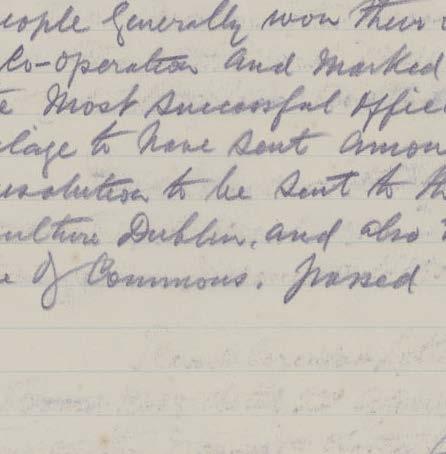 eople generally won their
Co-operation and marked
e most successful offic
lage to have sent amon
esolution to be sent to th
culture Dublin, and also
e of Commons. passed